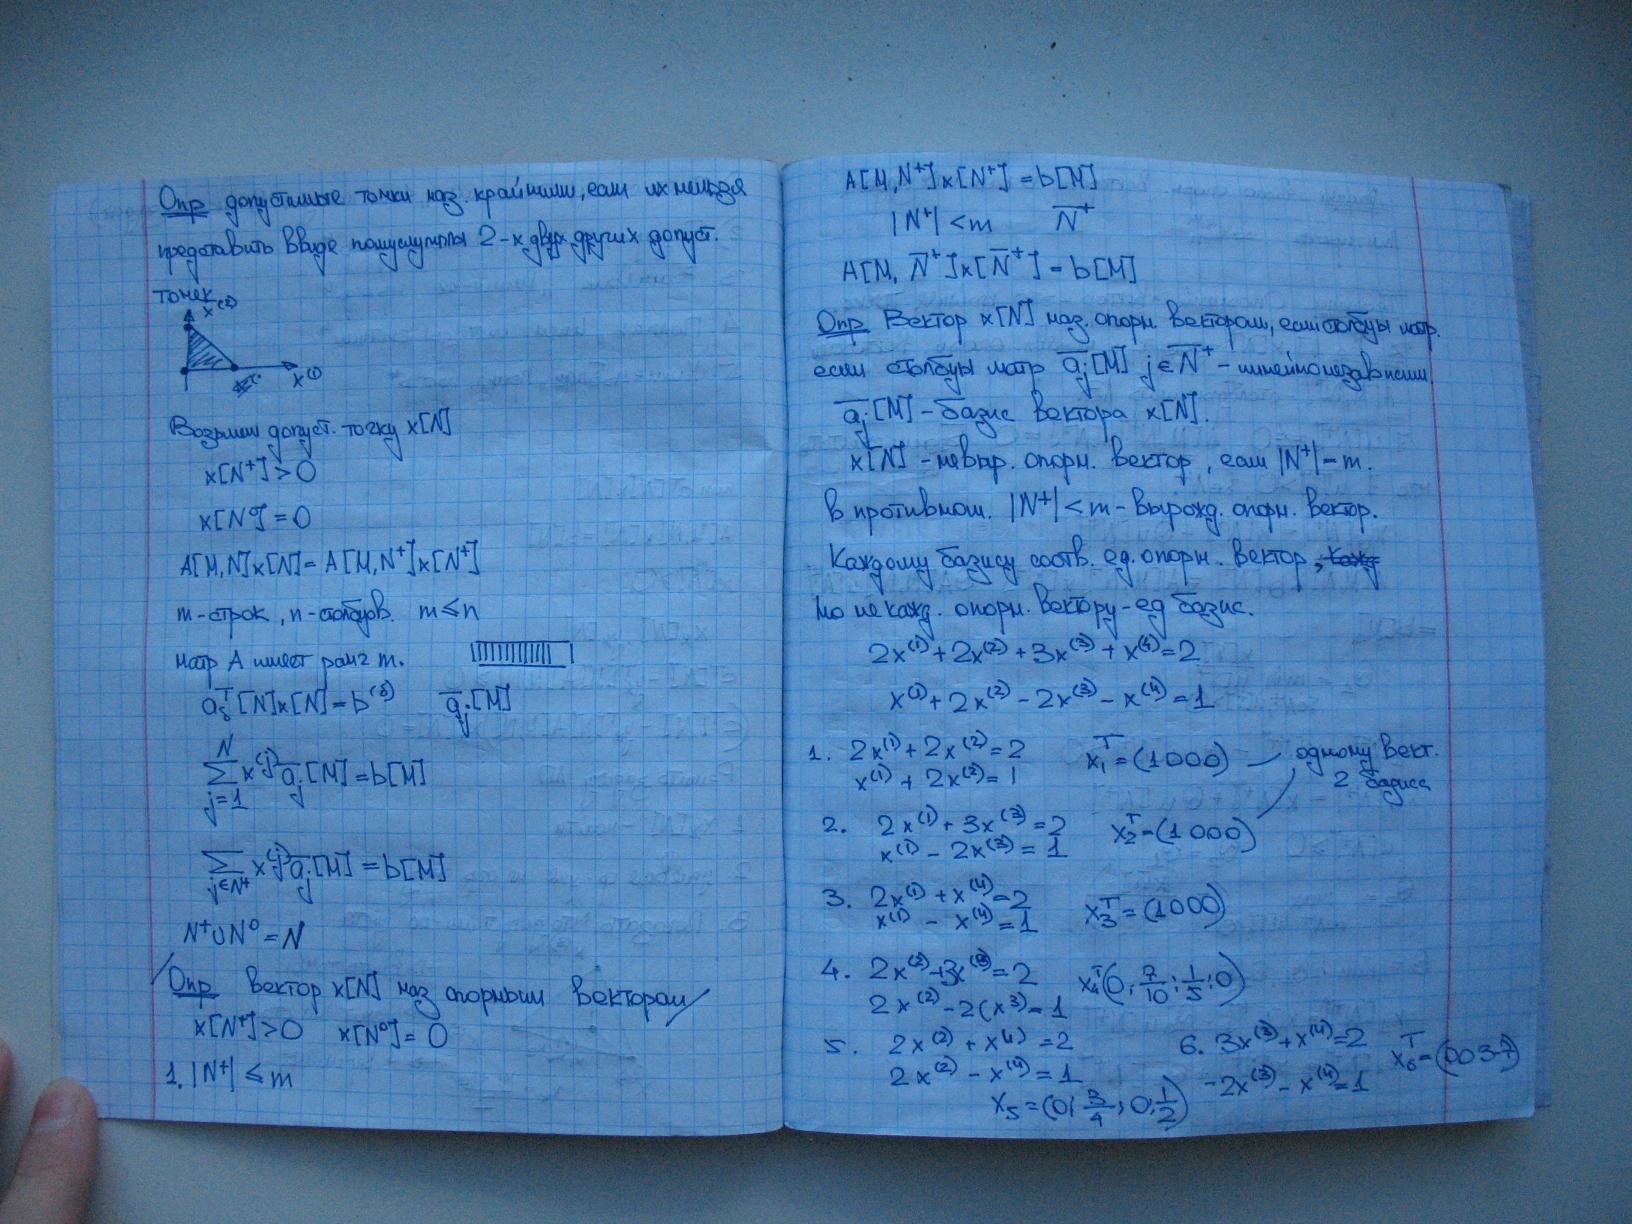 Опр допустимые точки наз. крайними, если их нельзя
представить ввиде полусуммы 2-х двух других допуст.
точек
x⁽²⁾
x⁽¹⁾
Возьмем допуст. точку x[N]
x[N⁺] > 0
x[N⁰] = 0
A[M,N]x[N] = A[M,N⁺]x[N⁺]
m-строк, n-столбцов. m ≤ n
матр A имеет ранг m.
a̅ᵟᵀ[N]x[N] = b⁽ᵟ⁾ a̅ⱼ[M]
∑ⱼ₌₁ᴺ x⁽ʲ⁾a̅ⱼ[M] = b[M]
∑ⱼ∈N⁺ x⁽ʲ⁾a̅ⱼ[M] = b[M]
N⁺∪N⁰ = N
Опр Вектор x[N] наз опорным вектором
x[N⁺] > 0 x[N⁰] = 0
1. |N⁺| ≤ m
A[M,N⁺]x[N⁺] = b[M]
|N⁺| < m N̅⁺
A[M, N̅⁺]x[N̅⁺] = b[M]
Опр. Вектор x[N] наз. опорн. вектором, если столбцы матр.
если столбцы матр a̅ⱼ[M] j∈N̅⁺ - линейнонезависим.
a̅ⱼ[M] - базис вектора x[N].
x[N] - невыр. опорн. вектор, если |N⁺| = m.
в противном. |N⁺| < m - вырожд. опорн. вектор.
Каждому базису соотв. ед. опорн. вектор,
но не кажд. опорн. вектору - ед базис.
2x⁽¹⁾ + 2x⁽²⁾ + 3x⁽³⁾ + x⁽⁴⁾ = 2
x⁽¹⁾ + 2x⁽²⁾ - 2x⁽³⁾ - x⁽⁴⁾ = 1
1. 2x⁽¹⁾ + 2x⁽²⁾ = 2 x₁ᵀ = (1 0 0 0) одному вект.
x⁽¹⁾ + 2x⁽²⁾ = 1 2 базиса
2. 2x⁽¹⁾ + 3x⁽³⁾ = 2 x₂ᵀ = (1 0 0 0)
x⁽¹⁾ - 2x⁽³⁾ = 1
3. 2x⁽¹⁾ + x⁽⁴⁾ = 2 x₃ᵀ = (1 0 0 0)
x⁽¹⁾ - x⁽⁴⁾ = 1
4. 2x⁽²⁾ + 3x⁽³⁾ = 2 x₄ᵀ (0; 7/10; 1/5; 0)
2x⁽²⁾ - 2(x³⁾ = 1
5. 2x⁽²⁾ + x⁽⁴⁾ = 2 6. 3x⁽³⁾ + x⁽⁴⁾ = 2 x₆ᵀ = (0 0 3 -7)
2x⁽²⁾ - x⁽⁴⁾ = 1 -2x⁽³⁾ - x⁽⁴⁾ = 1
x₅ = (0; 3/4; 0; 1/2)